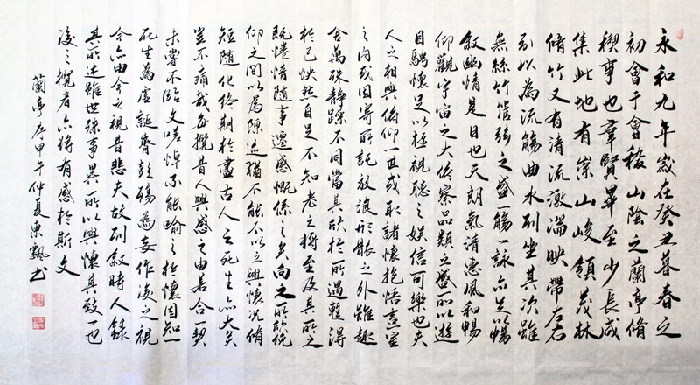 永和九年歲在癸丑暮春之
初會于會稽山陰之蘭亭脩
禊事也群賢畢至少長咸
集此地有崇山峻領茂林
脩竹又有清流激湍映帶左右
引以為流觴曲水列坐其次雖
無絲竹管弦之盛一觴一詠亦足以暢
敘幽情是日也天朗氣清惠風和暢
仰觀宇宙之大俯察品類之盛所以遊
目騁懷足以極視聽之娛信可樂也夫
人之相與俯仰一世或取諸懷抱悟言一室
之內或因寄所託放浪形骸之外雖趣
舍萬殊靜躁不同當其欣於所遇暫得
於己快然自足不知老之將至及其所之
既惓情隨事遷感慨係之矣向之所欣俛
仰之間以為陳迹猶不能不以之興懷況脩
短隨化終期於盡古人云死生亦大矣
豈不痛哉每攬昔人興感之由若合一契
未嘗不臨文嗟悼不能喻之於懷固知一
死生為虛誕齊彭殤為妄作後之視
今亦由今之視昔悲夫故列敘時人錄
其所述雖世殊事異所以興懷其致一也
後之攬者亦將有感於斯文
蘭亭序甲午仲夏